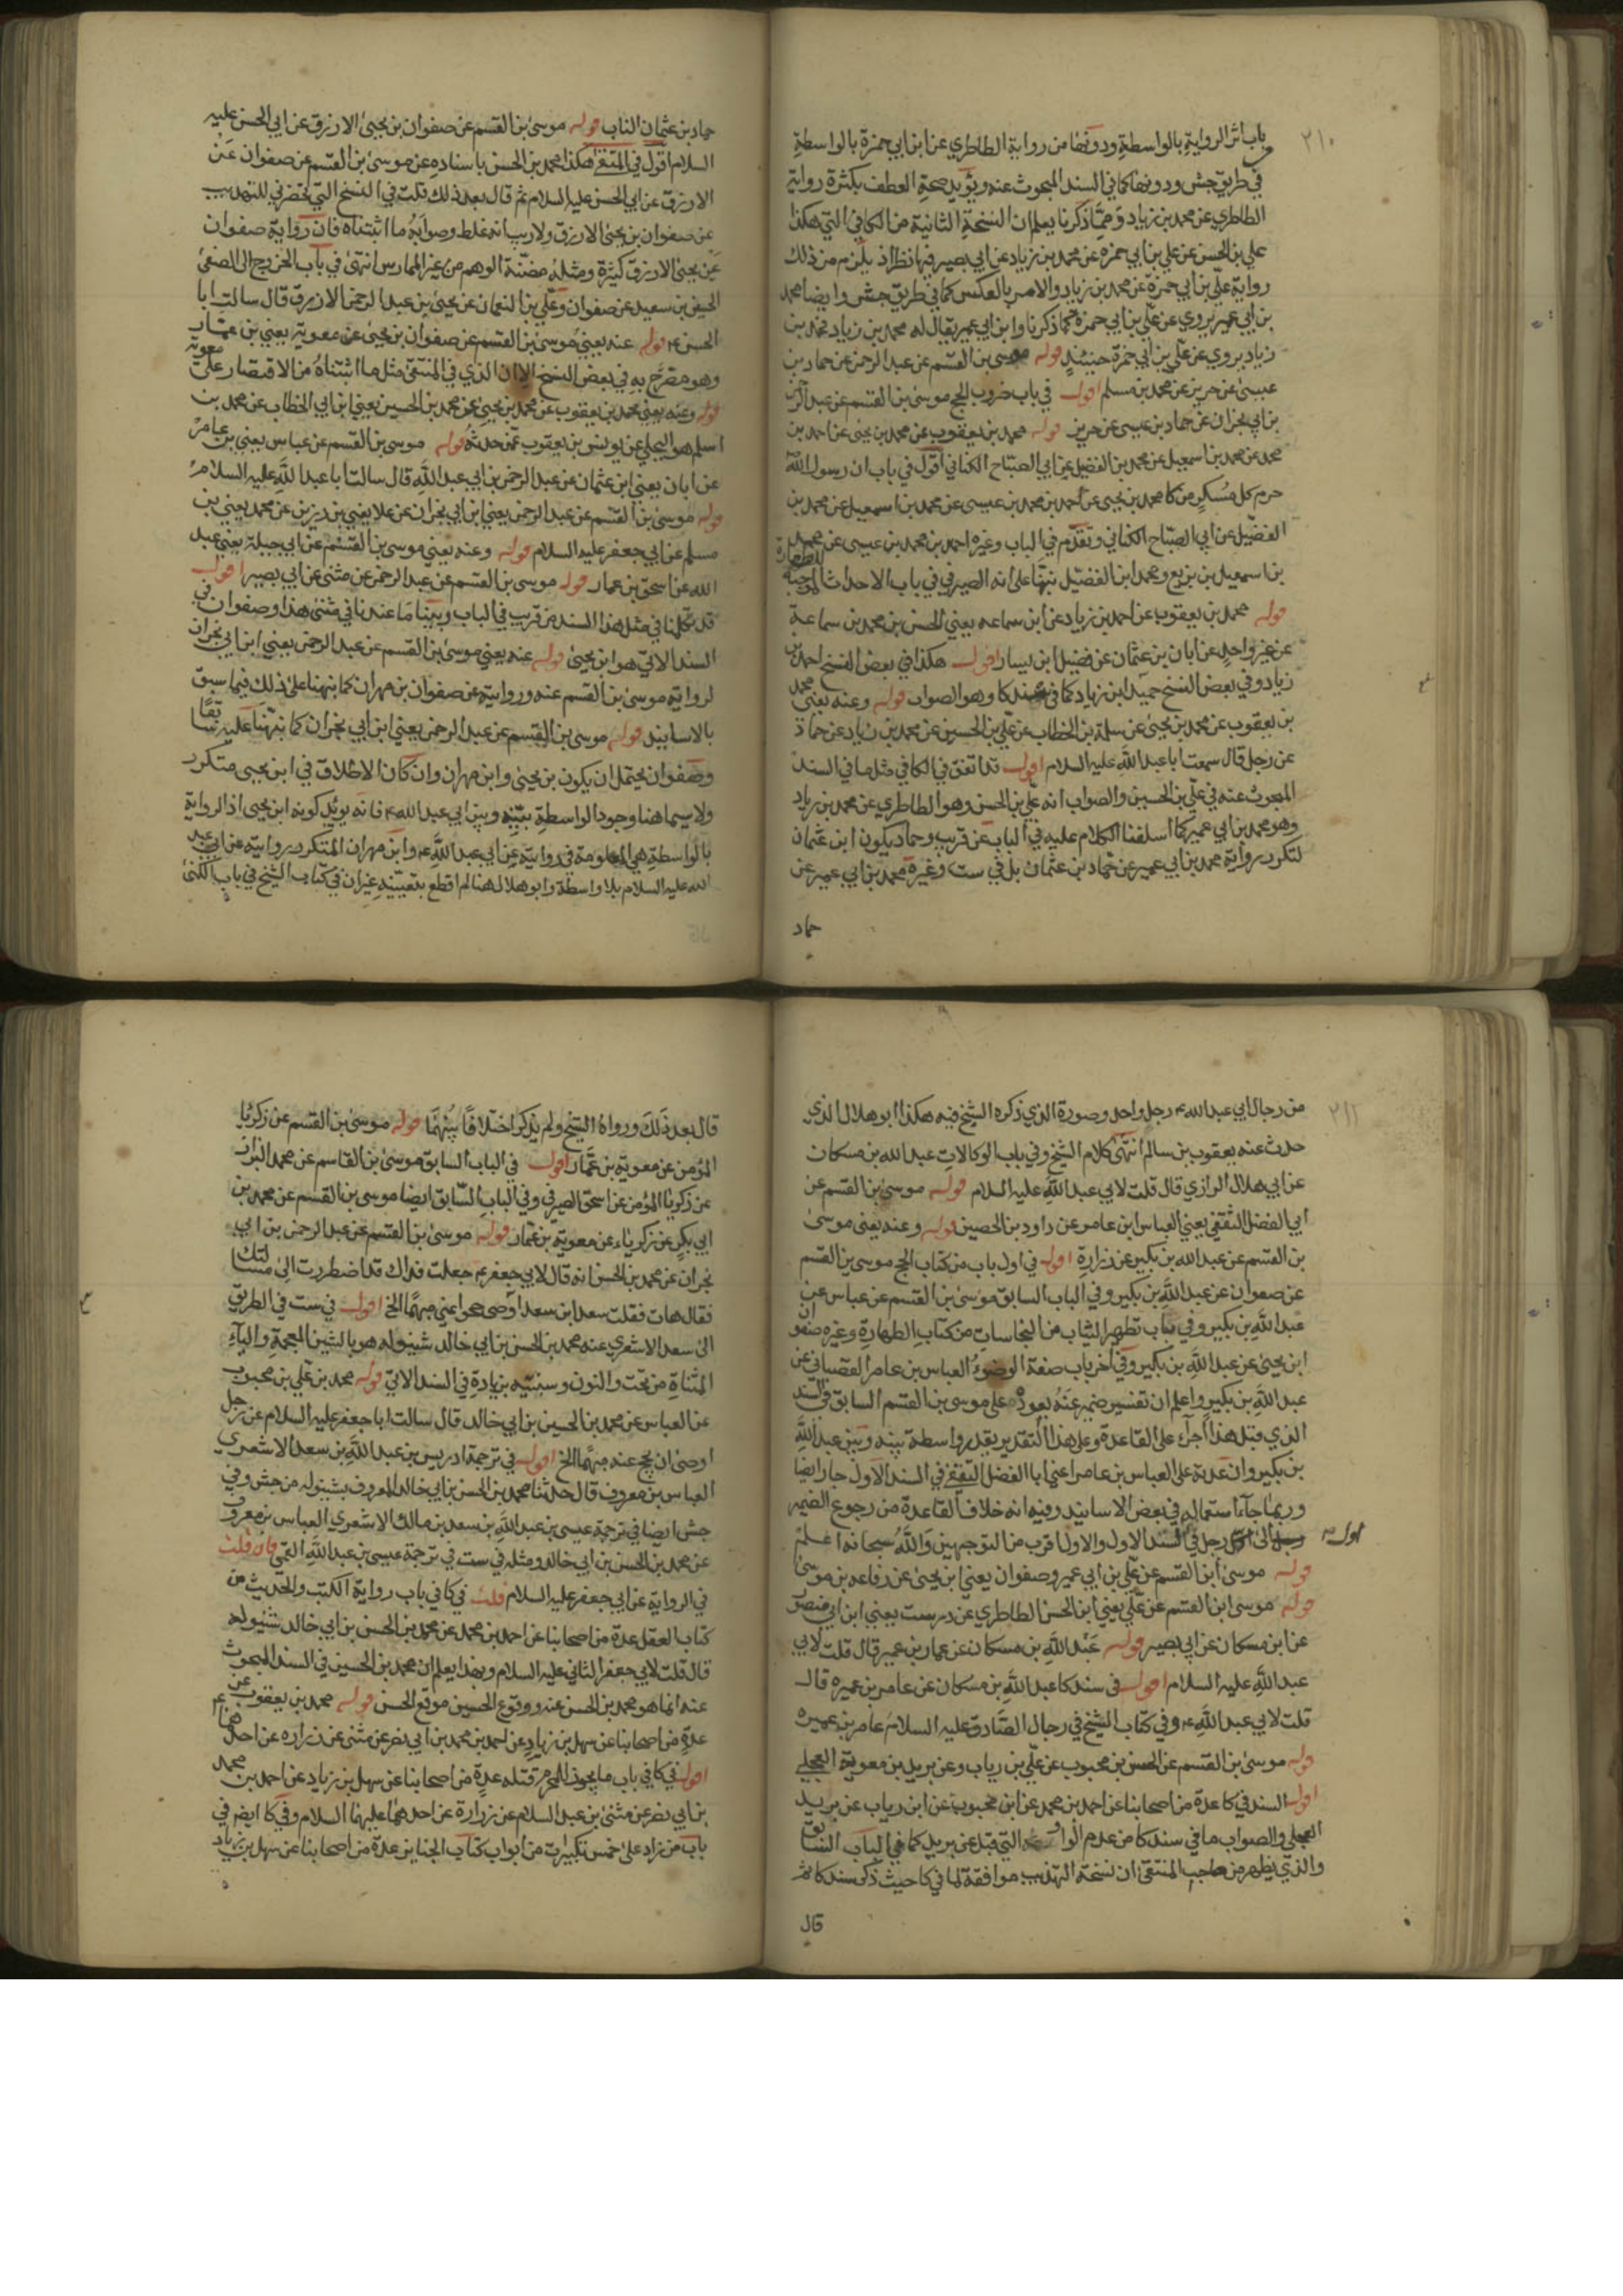 ٢١٠
باب اثر الرواية بالواسطة ودونها من رواية الطاطري عن ابن ابي حمزة بالواسطة
في طريق جش ودونها كما في السند المبحوث عنه ويؤيد صحة العطف بكثرة رواية
الطاطري عن محمد بن زياد ومما ذكرنا يعلم ان النسخة الثانية من الكافي التي هكذا
علي بن الحسن عن علي بن ابي حمزه عن محمد بن زياد عن ابي بصير فيها نظر اذ يلزم من ذلك
رواية علي بن ابي حمزة عن محمد بن زياد والامر بالعكس كما في طريق جش وايضا محمد
بن ابي عمير يروي عن علي بن ابي حمزة كما ذكرنا وابن ابي عمير يقال له محمد بن زياد فمحمد بن
زياد يروي عن علي بن ابي حمزة حينئذ قوله موسى بن القسم عن عبد الرحمن عن حماد بن
عيسى عن حريز عن محمد بن مسلم اقول في باب ضروب الحج موسى بن القسم عن عبد الرحمن
بن ابي نجران عن حماد بن عيسى عن حريز قوله محمد بن يعقوب عن محمد بن يحيى عن احمد بن
محمد عن محمد بن اسمعيل عن محمد بن الفضيل عن ابي الصباح الكناني اقول في باب ان رسول الله
حرم كل مسكر من كا محمد بن يحيى عن احمد بن محمد بن عيسى عن محمد بن اسمعيل عن محمد بن
الفضيل عن ابي الصباح الكناني وتقدم في الباب وغيره احمد بن محمد بن عيسى عن محمد
بن اسمعيل بن بزيع ومحمد ابن الفضيل نبهنا على انه الصيرفي في باب الاحداث الموجبة للطهارة
قوله محمد بن يعقوب عن احمد بن زياد عن ابن سماعه يعني الحسن بن محمد بن سماعة
عن غير واحد عن ابان بن عثمان عن فضيل ابن يسار اقول هكذا في بعض النسخ احمد بن
زياد وفي بعض النسخ حميد ابن زياد كما في سند كا وهو الصواب قوله وعنه يعني محمد
بن يعقوب عن محمد بن يحيى عن سلمة بن الخطاب عن علي بن الحسين عن محمد بن زياد عن حماد
عن رجل قال سمعت ابا عبد الله عليه السلام اقول قد اتفق في الكافي مثل ما في السند
المبحوث عنه في علي بن الحسين والصواب انه علي بن الحسن وهو الطاطري عن محمد بن زياد
وهو محمد بن ابي عمير كما اسلفنا الكلام عليه في الباب عن قريب وحماد يكون ابن عثمان
لتكرر رواية محمد بن ابي عمير عن حماد بن عثمان بل في ست وغيره محمد بن ابي عمير عن
حماد
حماد بن عثمان الناب قوله موسى بن القسم عن صفوان بن يحيى الازرق عن ابي الحسن عليه
السلام اقول في المنتقى هكذا محمد بن الحسن باسناده عن موسى بن القسم عن صفوان عن
الازرق عن ابي الحسن عليه السلام ثم قال بعد ذلك قلت في النسخ التي تحضرني للتهذيب
عن صفوان بن يحيى الازرق ولا ريب انه غلط وصوابه ما اثبتناه فان رواية صفوان
عن يحيى الازرق كثيرة ومثله مضنة الوهم من غير الممارس انتهى في باب الخروج الى الصفا
الحسين بن سعيد عن صفوان وعلي بن النعمان عن يحيى بن عبد الرحمن الازرق قال سالت ابا
الحسن ع قوله عنه يعني موسى بن القسم عن صفوان بن يحيى عن معوية يعني بن عمار
وهو مصرح به في بعض النسخ الا ان الذي في المنتقى مثل ما اثبتناه من الاقتصار على معوية
قوله وعنه يعني محمد بن يعقوب عن محمد بن يحيى عن محمد بن الحسين يعني ابن ابي الخطاب عن محمد بن
اسلم هو البجلي عن يونس بن يعقوب عمن حدثه قوله موسى بن القسم عن عباس يعني بن عامر
عن ابان يعني ابن عثمان عن عبد الرحمن بن ابي عبد الله قال سالت ابا عبد الله عليه السلام
قوله موسى بن القسم عن عبد الرحمن يعني ابن ابي نجران عن علا يعني بن رزين عن محمد يعني بن
مسلم عن ابي جعفر عليه السلام قوله وعنه يعني موسى بن القسم عن ابي جبلة يعني عبد
الله عن اسحق بن عمار قوله موسى بن القسم عن عبد الرحمن عن مثنى عن ابي بصير اقول
قد تكلمنا في مثل هذا السند من قريب في الباب وبينا ما عندنا في مثنى هذا وصفوان في
السند الاتي هو ابن يحيى قوله عنه يعني موسى بن القسم عن عبد الرحمن يعني ابن ابي نجران
لرواية موسى بن القسم عنه وروايته عن صفوان بن مهران كما نبهنا على ذلك فيما سبق
بالاسانيد قوله موسى بن القسم عن عبد الرحمن يعني ابن ابي نجران كما نبهنا عليه سابقا
وصفوان يحتمل ان يكون بن يحيى وابن مهران وان كان الاطلاق في ابن يحيى متكرر
ولا سيما هنا وجود الواسطة بينه وبين ابي عبد الله ع فانه يؤيد كونه ابن يحيى اذ الرواية
بالواسطة هي المعلومة في روايته عن ابي عبد الله ع وابن مهران المتكرر روايته عن ابي عبد
الله عليه السلام بلا واسطة وابو هلال هنا لم اقطع بتعيينه غير ان في كتاب الشيخ في باب الكنى
٢١١
من رجال ابي عبد الله ع رجل واحد وصورة الذي ذكره الشيخ فيه هكذا ابو هلال الذي
حدث عنه يعقوب بن سالم انتهى كلام الشيخ وفي باب الوكالات عبد الله بن مسكان
عن ابي هلال الرازي قال قلت لابي عبد الله عليه السلام قوله موسى بن القسم عن
ابي الفضل الثقفي يعني العباس ابن عامر عن داود بن الحصين قوله وعنه يعني موسى
بن القسم عن عبد الله بن بكير عن زرارة اقول في اول باب من كتاب الحج موسى بن القسم
عن صفوان عن عبد الله بن بكير وفي الباب السابق موسى بن القسم عن عباس عن
عبد الله بن بكير وفي باب تطهير الثياب من النجاسات من كتاب الطهارة وغيره صفوان
ابن يحيى عن عبد الله بن بكير وفي اخر باب صفة الوضوء العباس بن عامر القصباني عن
عبد الله بن بكير واعلم ان تفسير ضمير عنه بعوده على موسى بن القسم السابق في السند
الذي قبل هذا اجراء على القاعدة وعلى هذا التقدير يقدر واسطة بينه وبين عبد الله
بن بكير وان عدته على العباس بن عامر اعني ابا الفضل الثقفي في السند الاول جاز ايضا
وربما جاء استعماله في بعض الاسانيد وفيه انه خلاف القاعدة من رجوع الضمير
الى اول رجل في السند الاول والاول اقرب من التوجيهين والله سبحانه اعلم
قوله موسى ابن القسم عن علي بن ابي عمير وصفوان يعني ابن يحيى عن رفاعه بن موسى
قوله موسى ابن القسم عن علي يعني ابن الحسن الطاطري عن درست يعني ابن ابي منصور
عن ابن مسكان عن ابي بصير قوله عبد الله بن مسكان عن عمار بن عمير قال قلت لابي
عبد الله عليه السلام اقول في سند كا عبد الله بن مسكان عن عامر بن عميره قال
قلت لابي عبد الله ع وفي كتاب الشيخ في رجال الصادق عليه السلام عامر بن عميره
قوله موسى بن القسم عن الحسن بن محبوب عن علي بن رياب وعن بريد بن معوية العجلي
اقول السند في كا عدة من اصحابنا عن احمد بن محمد عن ابن محبوب عن ابن رياب عن بريد
العجلي والصواب ما في سند كا من عدم الواو التي قبل عن بريد كما في الباب السابق
والذي يظهر من صاحب المنتقى ان نسخة التهذيب موافقة لما في كا حيث ذكر سند كا ثم
قال
قال بعد ذلك ورواه الشيخ ولم يذكر اختلافا بينهما قوله موسى بن القسم عن زكريا
المؤمن عن معوية بن عمار اقول في الباب السابق موسى بن القاسم عن محمد البزاز
عن زكريا المؤمن عن اسحق الصيرفي وفي الباب السابق ايضا موسى بن القسم عن محمد بن
ابي بكر عن زكرياء عن معوية بن عمار قوله موسى بن القسم عن عبد الرحمن بن ابي
نجران عن محمد بن الحسن انه قال لابي جعفر ع جعلت فداك قد اضطررت الى مسالتك
فقال هات فقلت سعد ابن سعد اوصى حجوا عني مبهما الخ اقول في ست في الطريق
الى سعد الاشعري عنه محمد بن الحسن بن ابي خالد شنبوله هو بالشين المعجمة والباء
المثناة من تحت والنون وسننبه بزيادة في السند الاتي قوله محمد بن علي بن محبوب
عن العباس عن محمد بن الحسين بن ابي خالد قال سالت ابا جعفر عليه السلام عن رجل
اوصى ان يحج عنه مبهما الخ اقول في ترجمة ادريس بن عبد الله بن سعد الاشعري
العباس بن معروف قال حدثنا محمد بن الحسن بن ابي خالد المعروف بشنبوله من جش وفي
جش ايضا في ترجمة عيسى بن عبد الله بن سعد بن مالك الاشعري العباس بن معروف
عن محمد بن الحسن بن ابي خالد ومثله في ست في ترجمة عيسى بن عبد الله القمي فان قلت
في الرواية عن ابي جعفر عليه السلام قلت في كافي باب رواية الكتب والحديث من
كتاب العقل عدة من اصحابنا عن احمد بن محمد عن محمد بن الحسن بن ابي خالد شنبوله
قال قلت لابي جعفر الثاني عليه السلام وبهذا يعلم ان محمد بن الحسين في السند المبحوث
عنه انما هو محمد بن الحسن عنه ووقوع الحسين موقع الحسن قوله محمد بن يعقوب عن
عدة من اصحابنا عن سهل بن زياد عن احمد بن محمد بن ابي نصر عن مثنى عن زراره عن احدهما ع
اقول في كافي باب ما يجوز للمحرم قتله عدة من اصحابنا عن سهل بن زياد عن احمد بن محمد
بن ابي نصر عن مثنى بن عبد السلام عن زرارة عن احدهما عليهما السلام وفي كا ايضا في
باب من زاد على خمس تكبيرات من ابواب كتاب الجنايز عدة من اصحابنا عن سهل بن زياد